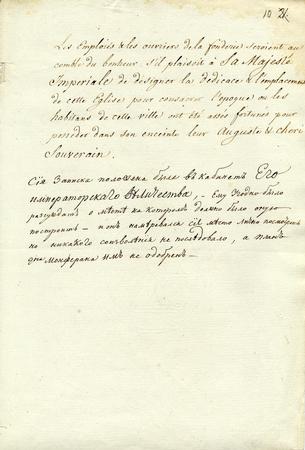 10
Les Employés & les ouvriers de la fonderie seroient au
comble du bonheur s'il plaisoit à Sa Majesté
Impériale de désigner la dédicace & l'emplacement
de cette Eglise pour consacrer l'epoque ou les
habitans de cette ville ont été assés fortunés pour
posseder dans son enceinte leur Auguste & cheri
Souverain.
Сія Записка положена была в кабинетъ Его
императорскаго Величества, - Ему Угодно было
разсуждать о мѣстѣ на которомъ должно было оную
построить - потъ намѣревался сіе мѣсто лично посмотреть
но никакого соизволенія не последовало, а планъ
Монферана имъ не одобренъ -